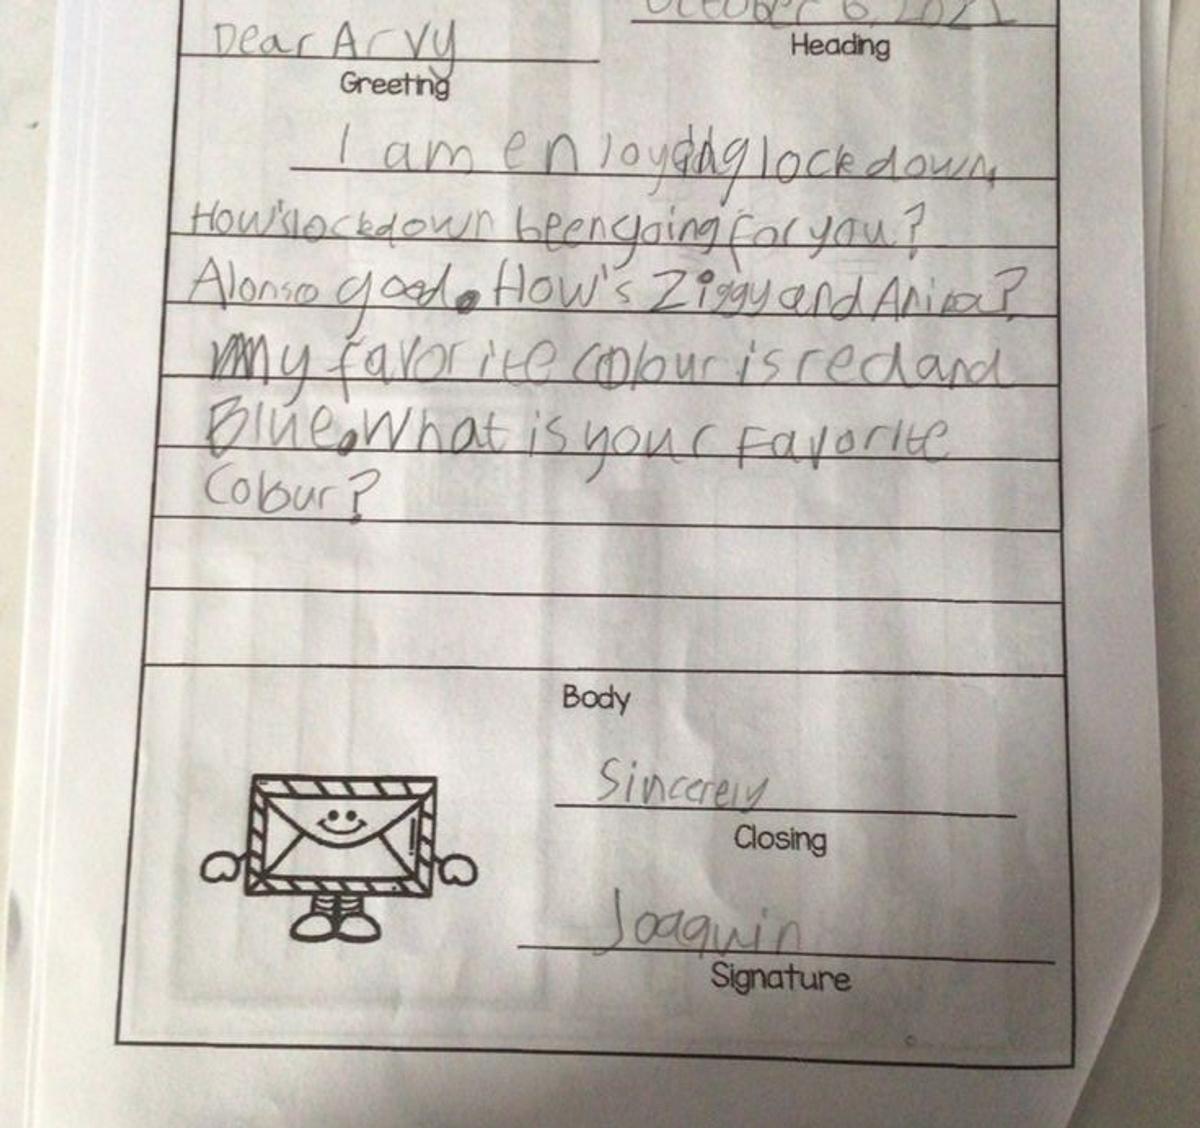 October 6, 2021
Dear Arvy
Heading
Greeting
I am enjoying lockdown,
How's lockdown been going for you?
Alonso good. How's Ziggy and
my favorite colour is red and
Blue. What is your Favorite
Colour?
Body
Sincerely
Closing
Joaquin
Signature